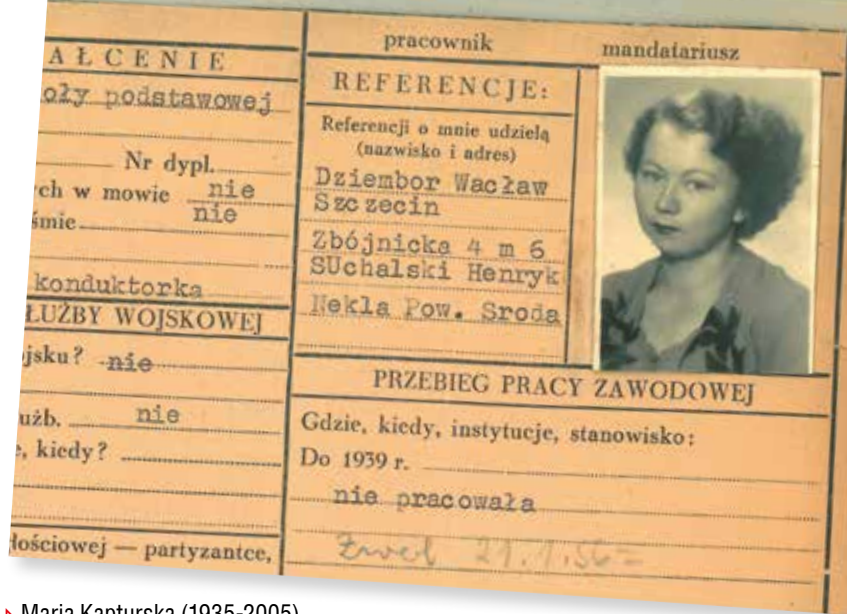 AŁCENIE
oły podstawowej
Nr dypl.
ch w mowie nie
śmie nie
konduktorka
ŁUŻBY WOJSKOWEJ
jsku? nie
użb. nie
e, kiedy?
łościowej — partyzantce,
pracownik mandatariusz
REFERENCJE:
Referencji o mnie udzielą
(nazwisko i adres)
Dziembor Wacław
Szczecin
Zbójnicka 4 m 6
SUchalski Henryk
Nekla Pow. Sroda
PRZEBIEG PRACY ZAWODOWEJ
Gdzie, kiedy, instytucje, stanowisko:
Do 1939 r.
nie pracowała
21.1.56
Maria Kapturska (1935-2005)